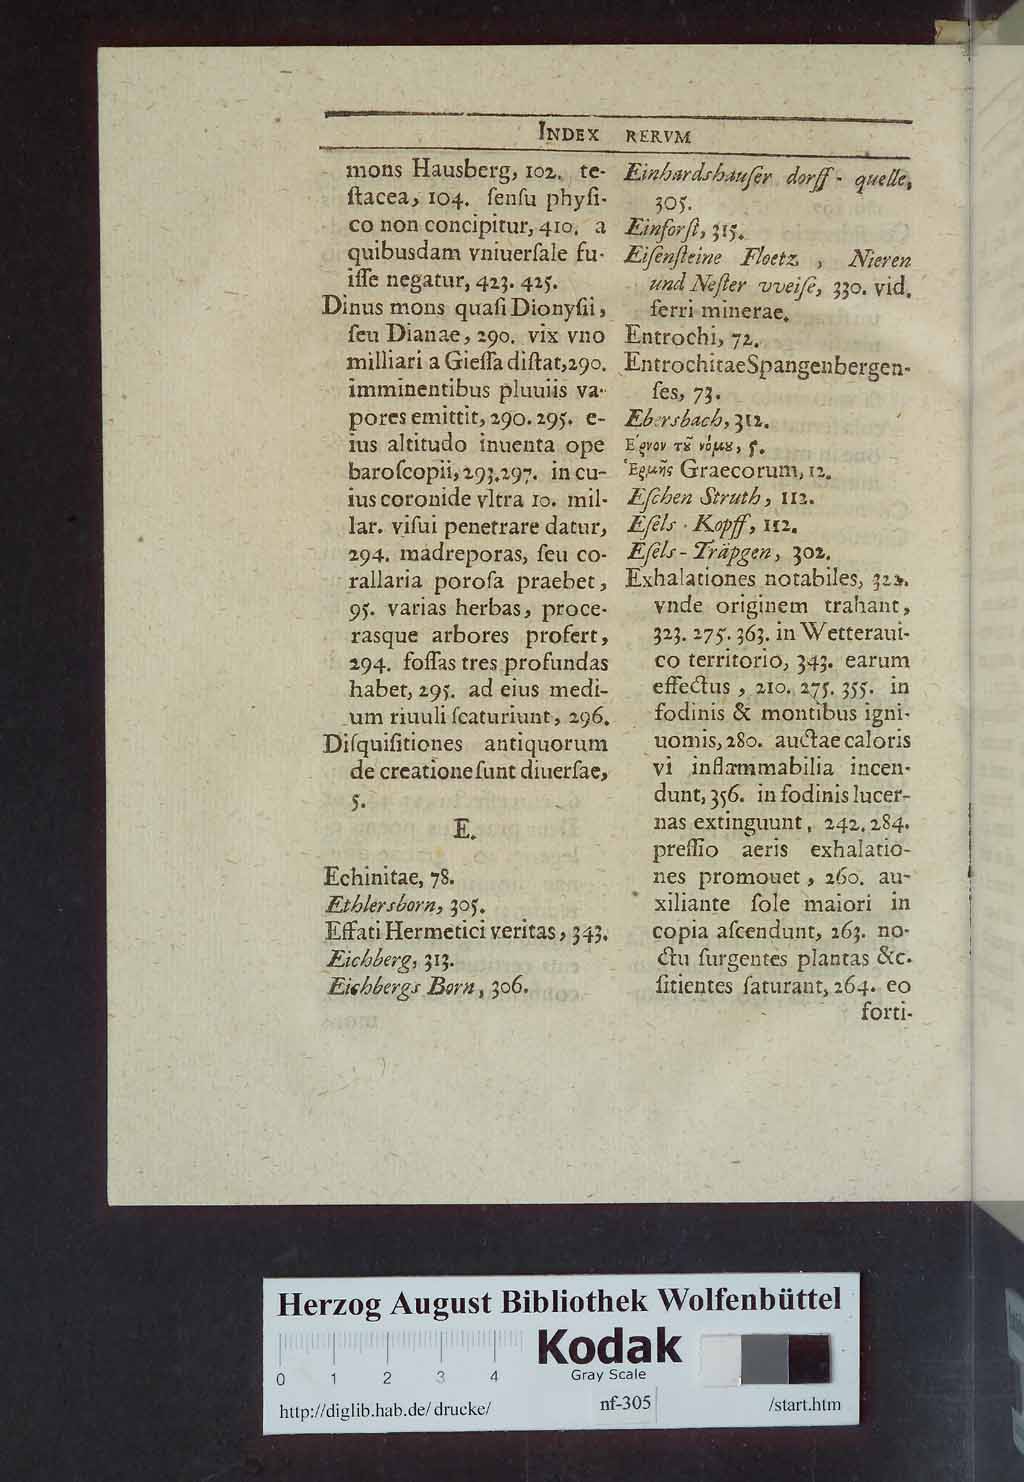 INDEX RERVM
mons Hausberg, 102. te-
ſtacea, 104. ſenſu phyſi-
co non concipitur, 410. a
quibusdam vniuerſale fu-
iſſe negatur, 423. 425.
Dinus mons quaſi Dionyſii,
ſeu Dianae, 290. vix vno
milliari a Gieſſa diſtat, 290.
imminentibus pluuiis va-
pores emittit, 290. 295. e-
ius altitudo inuenta ope
baroſcopii, 293. 297. in cu-
ius coronide vltra 10. mil-
lar. viſui penetrare datur,
294. madreporas, ſeu co-
rallaria poroſa praebet,
95. varias herbas, proce-
rasque arbores profert,
294. foſſas tres profundas
habet, 295. ad eius medi-
um riuuli ſcaturiunt, 296.
Diſquiſitiones antiquorum
de creatione ſunt diuerſae,
5.
E.
Echinitae, 78.
Ethlersborn, 305.
Effati Hermetici veritas, 343.
Eichberg, 313.
Eichbergs Born, 306.
Einhardshauſer dorff-quelle,
305.
Einforſt, 315.
Eiſenſteine Floetz, Nieren
und Neſter vveiſe, 330. vid.
ferri minerae.
Entrochi, 72.
Entrochitae Spangenbergen-
ſes, 73.
Ebersbach, 312.
Ἔργον τȣ͂ νόμȣ, 5.
Ἑρμῆς Graecorum, 12.
Eſchen Struth, 112.
Eſels-Kopff, 112.
Eſels-Träpgen, 302.
Exhalationes notabiles, 322.
vnde originem trahant,
323. 275. 363. in Wetteraui-
co territorio, 343. earum
effectus, 210. 275. 355. in
fodinis & montibus igni-
uomis, 280. auctae caloris
vi inflammabilia incen-
dunt, 356. in fodinis lucer-
nas extinguunt, 242. 284.
preſſio aeris exhalatio-
nes promouet, 260. au-
xiliante ſole maiori in
copia aſcendunt, 263. no-
ctu ſurgentes plantas &c.
ſitientes ſaturant, 264. eo
forti-
Herzog August Bibliothek Wolfenbüttel
Kodak
Gray Scale
0 1 2 3 4
http://diglib.hab.de/drucke/ nf-305 /start.htm